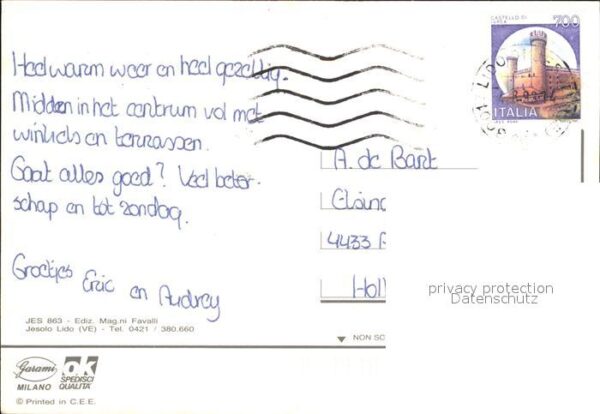 Heel warm weer en heel gezellig.
Midden in het centrum vol met
winkels en terrassen.
Gaat alles goed? Veel beter-
schap en tot zondag.
Groetjes Eric en Audrey
CASTELLO DI
IVREA
700
ITALIA
A. de Bart
4433
Holl
privacy protection
Datenschutz
JES 863 - Ediz. Mag.ni Favalli
Jesolo Lido (VE) - Tel. 0421 / 380.660
NON SC
Garami
MILANO
OK
SPEDISCI
QUALITÀ
© Printed in C.E.E.